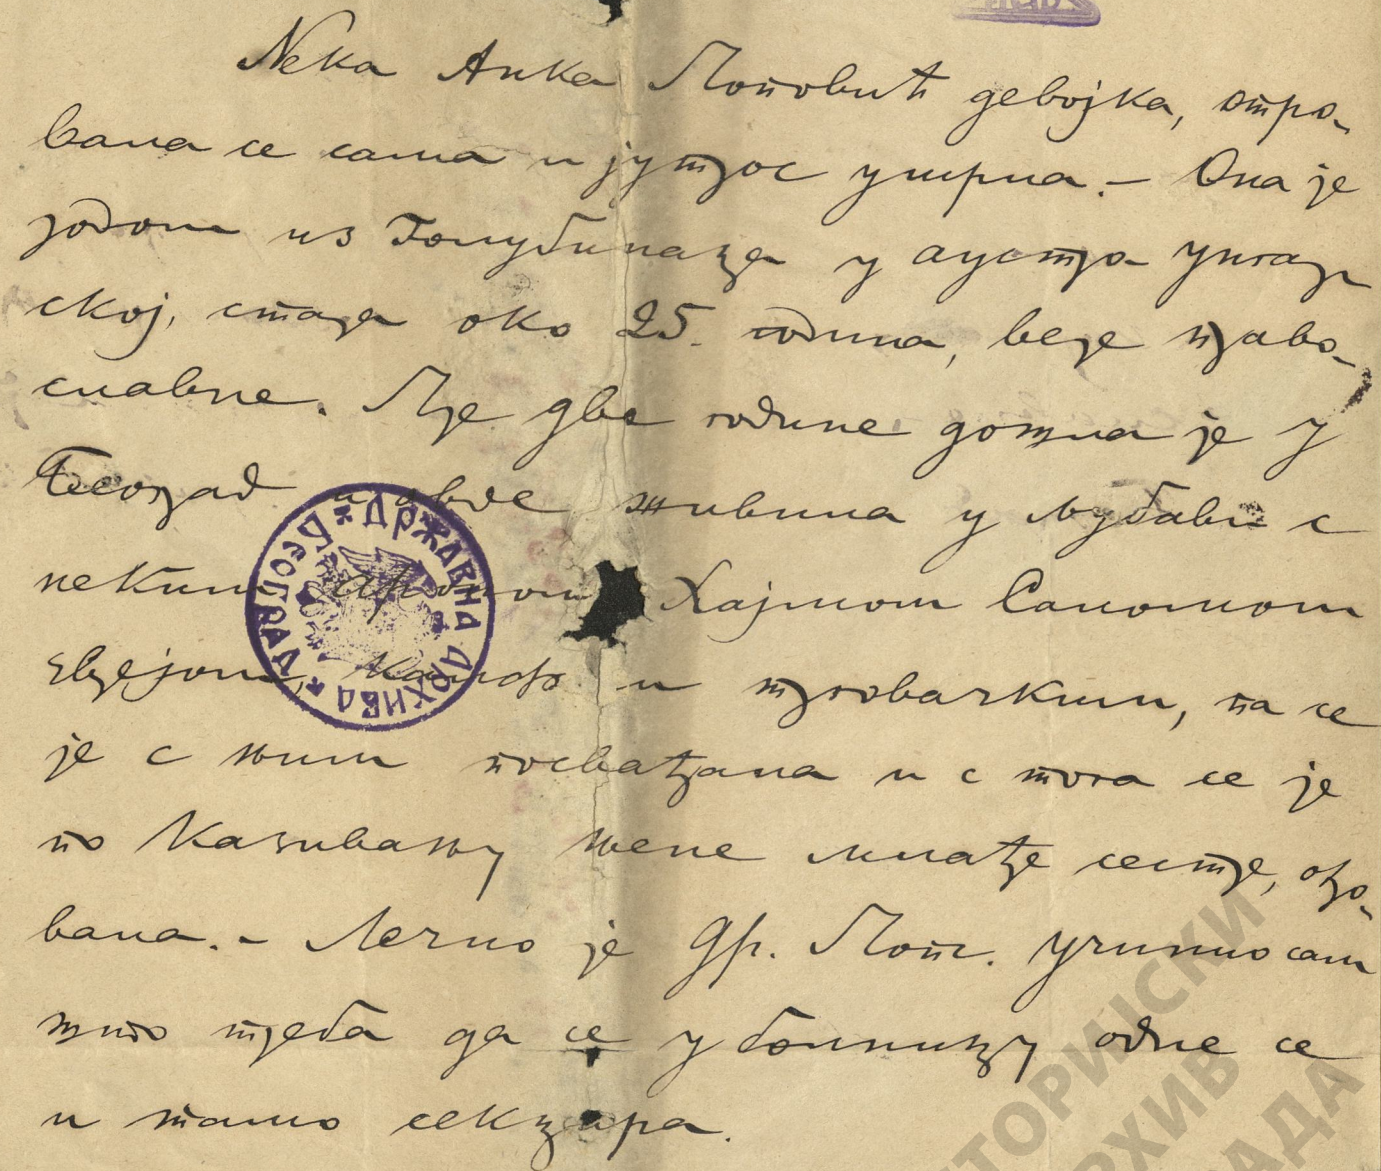 Нека Анка Поповић девојка, отро-
вала се сама и јутрос умрла. – Она је
родом из Голубинаца у аустро угар
ској, стара око 25. година, вере право-
славне. Пре две године дошла је у
Београд и овде живила у љубави с
неким Хајмом Саломом
јеврејом, и трговачким, па се
је с њим посвађала и с тога се је
по казивању њене млађе сестре, отро-
вала. – Лечио је Др. Поп. Учинио сам
што треба да се у болницу одне се
и тамо секцира.
ДРЖАВНА АРХИВА * БЕОГРАД *
ИСТОРИЈСКИ
АРХИВ
БЕОГРАДА